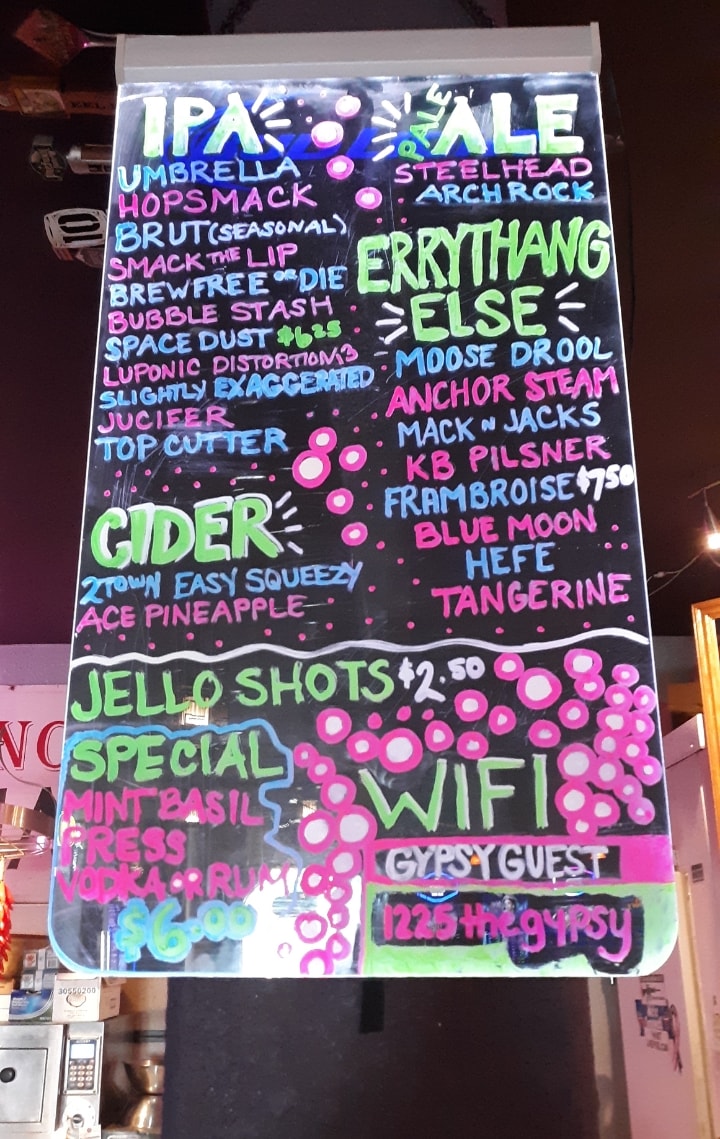 IPA
UMBRELLA
HOPSMACK
BRUT (SEASONAL)
SMACK THE LIP
BREWFREE OR DIE
BUBBLE STASH
SPACE DUST $6.25
LUPONIC DISTORTION 13
SLIGHTLY EXAGGERATED
JUCIFER
TOP CUTTER
CIDER
2TOWN EASY SQUEEZY
ACE PINEAPPLE
PALE ALE
STEELHEAD
ARCH ROCK
ERRYTHANG
ELSE
MOOSE DROOL
ANCHOR STEAM
MACK N JACKS
KB PILSNER
FRAMBROISE $7.50
BLUE MOON
HEFE
TANGERINE
JELLO SHOTS $2.50
SPECIAL
MINT BASIL
PRESS
VODKA OR RUM
$6.00
WIFI
GYPSY GUEST
1225thegypsy
30550200